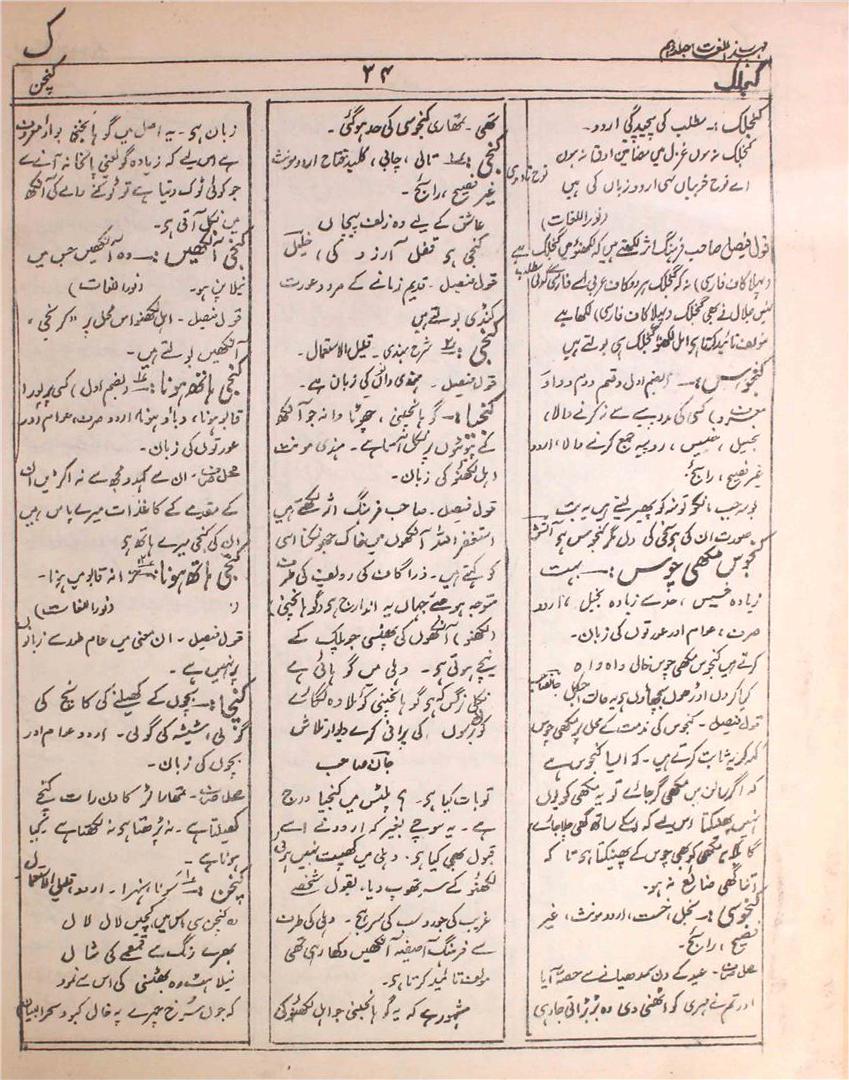 مہذب اللغات جلد دہم
ک
گنجلک
۲۴
کنچن
گنجلک :۔ مطلب کی پیچیدگی اردو۔
گنجلک نہ ہوں غزل میں مضامین ادق نہ ہوں
اے نوح خوبیاں یہی اردو زباں کی ہیں
نوح ناروی
(نور اللغات)
قول فیصل صاحب فرہنگ اثر لکھتے ہیں کہ لکھنؤ میں گنجلک ہے
(پہلا کاف فارسی) نہ کہ کنجلک ہر دو کاف عربی اے فارسی
جلال نے بھی گنجلک (پہلا کاف فارسی) لکھا ہے
مؤلف تائید کرتا ہے اہل لکھنؤ گنجلک ہی بولتے ہیں
کنجوس :۔ (بضم اول و قسم دوم و واو
معروف) کسی کی مدد پیسے سے نہ کرنے والا،
بخیل، خسیس، روپیہ جمع کرنے والا، اردو
غیر فصیح، رائج۔
بوسہ جب مانگو تو منہ کو پھیر لیتے ہیں یہ بت
صورت ان کی سخی کی دل مگر کنجوس ہے آتش
کنجوس مکھی چوس :۔ بہت
زیادہ خسیس، حد سے زیادہ بخیل، اردو
صرف، عوام اور عورتوں کی زبان۔
کرتے ہیں کنجوس مکھی چوس خالی واہ واہ
کیا کروں اوڑھوں بچھاؤں ہے یہ حالت آجکل جانصاحب
قول فیصل۔ کنجوس کی مذمت کے محل پر مکھی چوس
کہہ کر یہ ثابت کرتے ہیں۔ کہ ایسا کنجوس ہے
کہ اگر سالن میں مکھی گر جائے تو یہ مکھی کو یوں
نہیں پھینکتا اس لیے کہ اسکے ساتھ گھی چلا جائے
گا بلکہ مکھی کو بھی چوس کے پھینکتا ہے تا کہ
اتنا گھی ضائع نہ ہو۔
کنجوسی :۔ بخل، خست، اردو مونث، غیر
فصیح، رائج۔
محل صرف۔ عید کے دن سمدھیانے سے حصہ آیا
اور تم نے مہری کو اٹھنی دی وہ بڑبڑاتی جا رہی
تھی۔ تمھاری کنجوسی کی حد ہو گئی۔
کنجی :۔ تالی، چابی، کلید مفتاح اردو مونث
غیر فصیح، رائج۔
عاشق کے لیے وہ زلف پیچاں
کنجی ہے قفل آرزو کی، خلیل
قول فیصل۔ قدیم زمانے کے مرد و عورت
کنڈی بولتے ہیں
کنجی :۔ شرح ہندی۔ قلیل الاستعمال۔
قول فیصل۔ ہندی داں کی زبان ہے۔
کنجیا :۔ گوہانجنی، چھوٹا دانہ جو آنکھ
کے پپوٹوں پر نکل آتا ہے۔ ہندی مونث
اہل لکھنؤ کی زبان۔
قول فیصل۔ صاحب فرہنگ اثر لکھتے ہیں
استغفر اللہ آنکھوں میں خاک جھونکنا اسی
کو کہتے ہیں۔ ذرا گاف کی ردیف کی طرف
متوجہ ہو جیے جہاں یہ اندارج ہے (گوہانجنی)
(لکھنؤ) آنکھوں کی پھنسی جو پلک کے
نیچے ہوتی ہے۔ دہلی میں گوہائی ہے
نکلی نرگس کے ہے گوہانجنی کوئلا وہ لگائے
گورکھوں کی پرانی کرے دیوار تلاش
جان صاحب
تو بات کیا ہے۔ پلیٹس میں کنجیا درج
ہے۔ یہ سوچے بغیر کہ اردو نے اسے
قبول بھی کیا ہے۔ دہلی میں کھپت نہیں ہوئی
لکھنؤ کے سر تھوپ دیا، بقول شخصے
غریب کی جورو سب کی سرہج۔ دہلی کی طرف
سے فرہنگ آصفیہ آنکھیں دکھا رہی تھی
مولف تائید کرتا ہے۔
مشہور ہے کہ یہ گوہانجنی جو اہل لکھنؤ کی
زبان ہے۔ یہ اصل میں گوہانجنی بواؤ معروف
ہے اس لیے کہ زیادہ گو یعنی پائخانہ آنے سے
جو کوئی ٹوک دیتا ہے تو ٹوکنے والے کی آنکھ
میں نکل آتی ہے۔
کنجی آنکھیں :۔ وہ آنکھیں جس میں
نیلاپن ہو۔ (نور اللغات)
قول فیصل۔ اہل لکھنؤ اس محل پر "کرنجی"
آنکھیں بولتے ہیں۔
کنجی ہاتھ ہونا :۔ (بضم اول) کسی پر پورا
قابو ہونا، دباؤ ہونا، اردو صرف، عوام اور
عورتوں کی زبان۔
محل صرف۔ ان سے کہہ دو مجھ سے نہ اکڑیں ان
کے مقدمے کے کاغذات میرے پاس ہیں
ان کی کنجی میرے ہاتھ ہے
کنجی ہاتھ ہونا :۔ قابو میں ہونا۔
(نور اللغات)
قول فیصل۔ ان معنی میں عام طور سے زبانوں
پر نہیں ہے۔
کنچا :۔ بچوں کے کھیلنے کی کانچ کی
گولی، شیشہ کی گولی۔ اردو عوام اور
بچوں کی زبان۔
محل صرف۔ تمھارا لڑکا دن رات کنچے
کھیلتا ہے۔ نہ پڑھتا ہے نہ لکھتا ہے۔ کیا
ہونا ہے۔
کنچن :۔ سونا، سنہرا۔ اردو، قلیل الاستعمال
وہ کنچن سی اس میں کچیں لال لال
بھرے رنگ سے قمقمے کی مثال
نیلاہٹ وہ بھٹنی کی اس سے نمود
کہ جوں سرخ چہرے پہ خال کبود سحر البیان